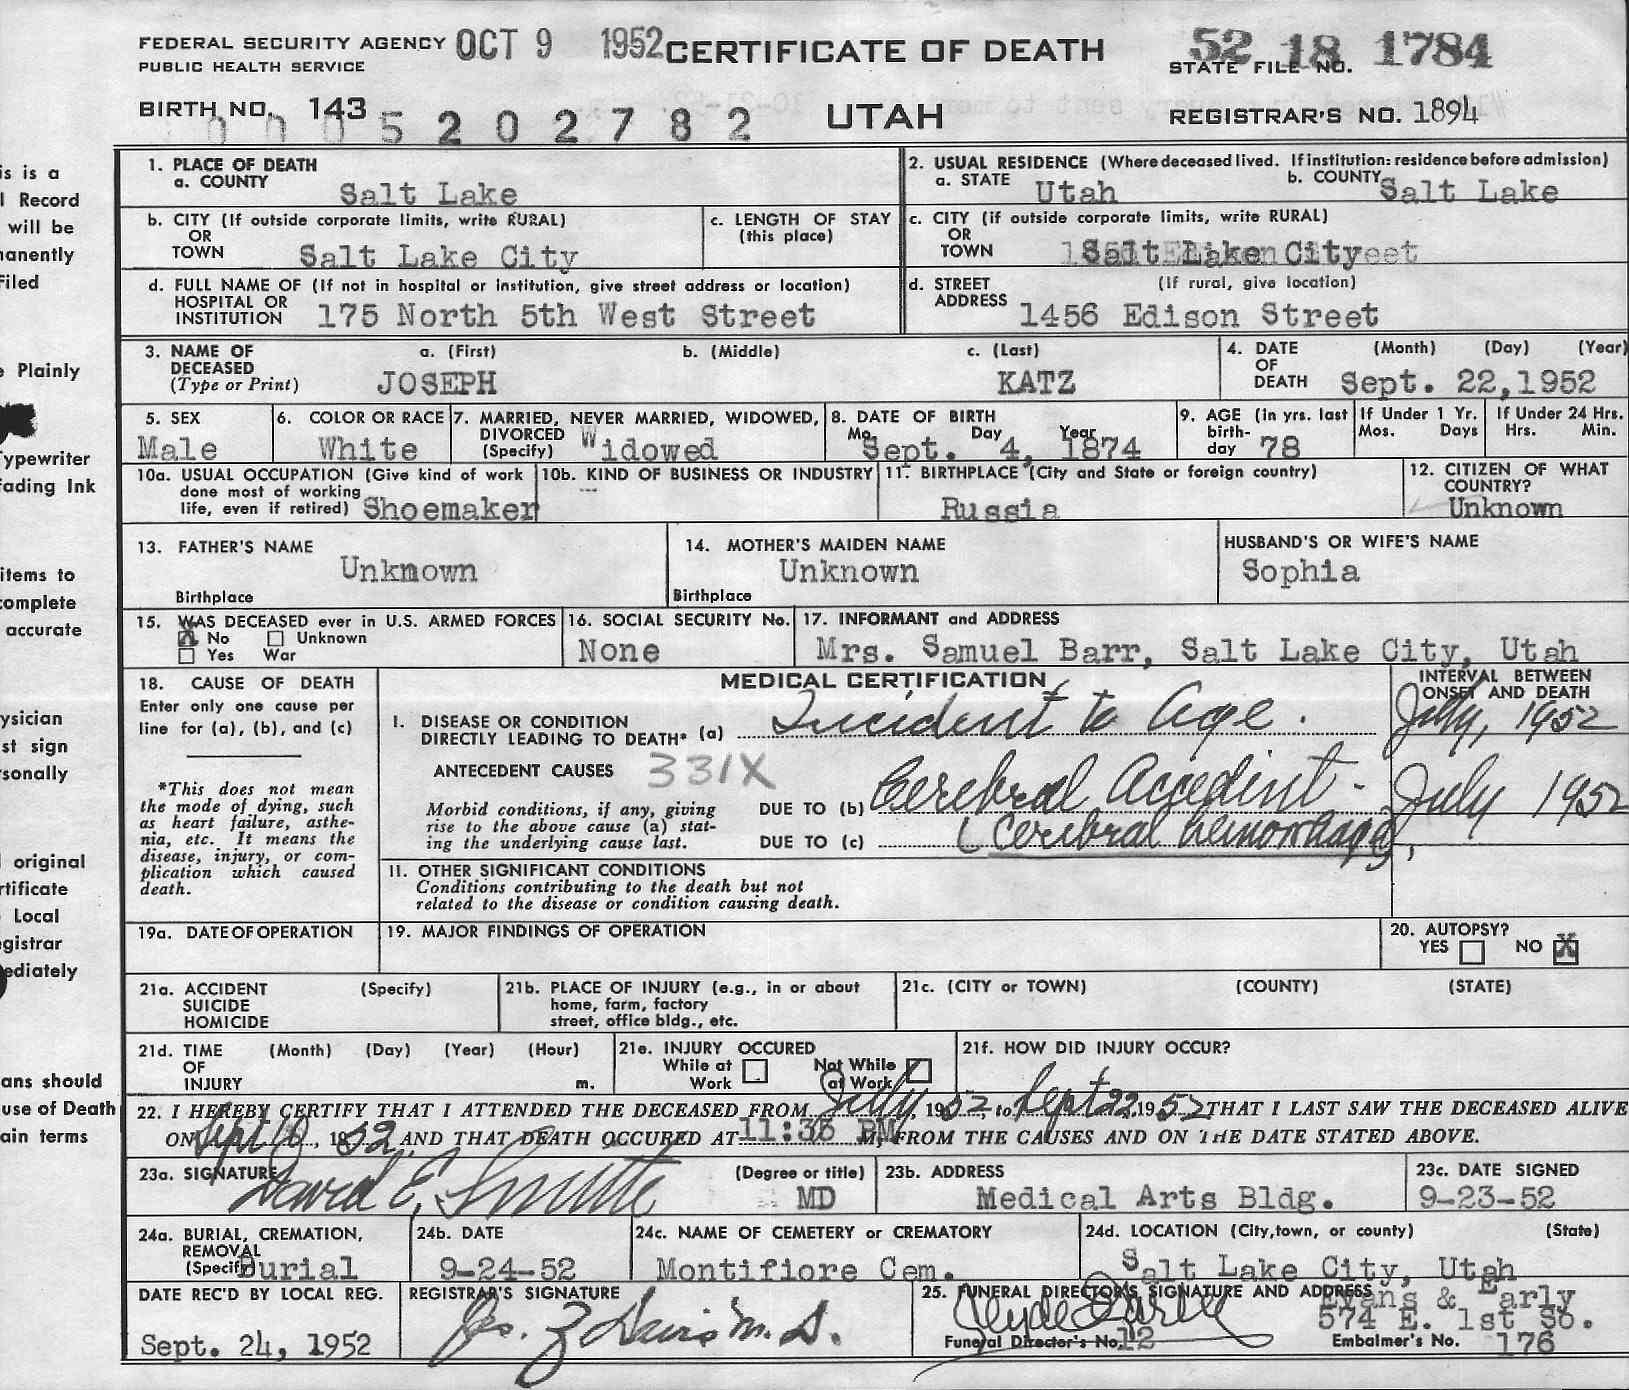 FEDERAL SECURITY AGENCY OCT 9 1952 CERTIFICATE OF DEATH 52 18 1784
PUBLIC HEALTH SERVICE STATE FILE NO.
BIRTH NO. 143 UTAH REGISTRAR'S NO. 1894
0 0 0 5 2 0 2 7 8 2
1. PLACE OF DEATH
a. COUNTY Salt Lake
2. USUAL RESIDENCE (Where deceased lived. If institution: residence before admission)
a. STATE Utah b. COUNTY Salt Lake
b. CITY (If outside corporate limits, write RURAL)
OR
TOWN Salt Lake City
c. LENGTH OF STAY
(this place)
c. CITY (if outside corporate limits, write RURAL)
OR
TOWN Salt Lake City
d. FULL NAME OF (If not in hospital or institution, give street address or location)
HOSPITAL OR
INSTITUTION 175 North 5th West Street
d. STREET (If rural, give location)
ADDRESS 1456 Edison Street
3. NAME OF a. (First) b. (Middle) c. (Last)
DECEASED
(Type or Print) JOSEPH KATZ
4. DATE (Month) (Day) (Year)
OF
DEATH Sept. 22, 1952
5. SEX
Male
6. COLOR OR RACE
White
7. MARRIED, NEVER MARRIED, WIDOWED,
DIVORCED
(Specify) Widowed
8. DATE OF BIRTH
Mo. Day Year
Sept. 4, 1874
9. AGE (in yrs. last
birth-
day 78
If Under 1 Yr.
Mos. Days
If Under 24 Hrs.
Hrs. Min.
10a. USUAL OCCUPATION (Give kind of work
done most of working
life, even if retired) Shoemaker
10b. KIND OF BUSINESS OR INDUSTRY
---
11. BIRTHPLACE (City and State or foreign country)
Russia
12. CITIZEN OF WHAT
COUNTRY?
Unknown
13. FATHER'S NAME
Unknown
Birthplace
14. MOTHER'S MAIDEN NAME
Unknown
Birthplace
HUSBAND'S OR WIFE'S NAME
Sophia
15. WAS DECEASED ever in U.S. ARMED FORCES
X No Unknown
Yes War
16. SOCIAL SECURITY No.
None
17. INFORMANT and ADDRESS
Mrs. Samuel Barr, Salt Lake City, Utah
18. CAUSE OF DEATH
Enter only one cause per
line for (a), (b), and (c)
*This does not mean
the mode of dying, such
as heart failure, asthe-
nia, etc. It means the
disease, injury, or com-
plication which caused
death.
MEDICAL CERTIFICATION
INTERVAL BETWEEN
ONSET AND DEATH
I. DISEASE OR CONDITION
DIRECTLY LEADING TO DEATH* (a) Incident to Age. July, 1952
ANTECEDENT CAUSES 331X
Morbid conditions, if any, giving
rise to the above cause (a) stat-
ing the underlying cause last.
DUE TO (b) Cerebral Accident - July 1952
DUE TO (c) (Cerebral hemorrhage)
11. OTHER SIGNIFICANT CONDITIONS
Conditions contributing to the death but not
related to the disease or condition causing death.
19a. DATE OF OPERATION
19. MAJOR FINDINGS OF OPERATION
20. AUTOPSY?
YES NO X
21a. ACCIDENT (Specify)
SUICIDE
HOMICIDE
21b. PLACE OF INJURY (e.g., in or about
home, farm, factory
street, office bldg., etc.
21c. (CITY or TOWN) (COUNTY) (STATE)
21d. TIME (Month) (Day) (Year) (Hour)
OF
INJURY m.
21e. INJURY OCCURED
While at Work Not While at Work
21f. HOW DID INJURY OCCUR?
22. I HEREBY CERTIFY THAT I ATTENDED THE DECEASED FROM July, 1952, to Sept 22, 1952 THAT I LAST SAW THE DECEASED ALIVE
ON Sept , 1952, AND THAT DEATH OCCURED AT 11:35 PM, FROM THE CAUSES AND ON THE DATE STATED ABOVE.
23a. SIGNATURE (Degree or title)
David E. MD
23b. ADDRESS
Medical Arts Bldg.
23c. DATE SIGNED
9-23-52
24a. BURIAL, CREMATION,
REMOVAL
(Specify) Burial
24b. DATE
9-24-52
24c. NAME OF CEMETERY or CREMATORY
Montifiore Cem.
24d. LOCATION (City, town, or county) (State)
Salt Lake City, Utah
DATE REC'D BY LOCAL REG.
Sept. 24, 1952
REGISTRAR'S SIGNATURE
25. FUNERAL DIRECTOR'S SIGNATURE AND ADDRESS
Evans & Early
574 E. 1st So.
Funeral Director's No. 12 Embalmer's No. 176
is is a
l Record
will be
anently
Filed
Plainly
Typewriter
fading Ink
items to
complete
accurate
ysician
st sign
rsonally
original
rtificate
Local
egistrar
ediately
ans should
use of Death
ain terms